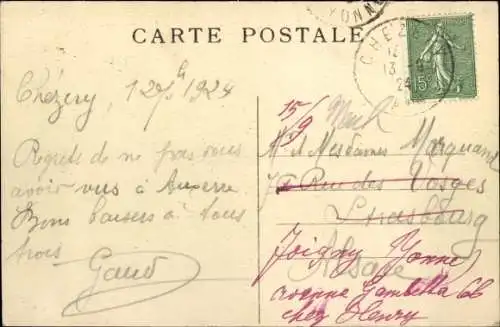 YONNE
CARTE POSTALE
CHÉZ
13 -9
24
15c
Chézery, 12 1924
Regrets de ne pas vous
avoir vus à Auxerre
Bons baisers à tous
trois
Gaud
15/9
M et Mesdames Marquand
Rue des Vosges
Strasbourg
Alsace
Joigny Yonne
avenue Gambetta 66
chez Henry